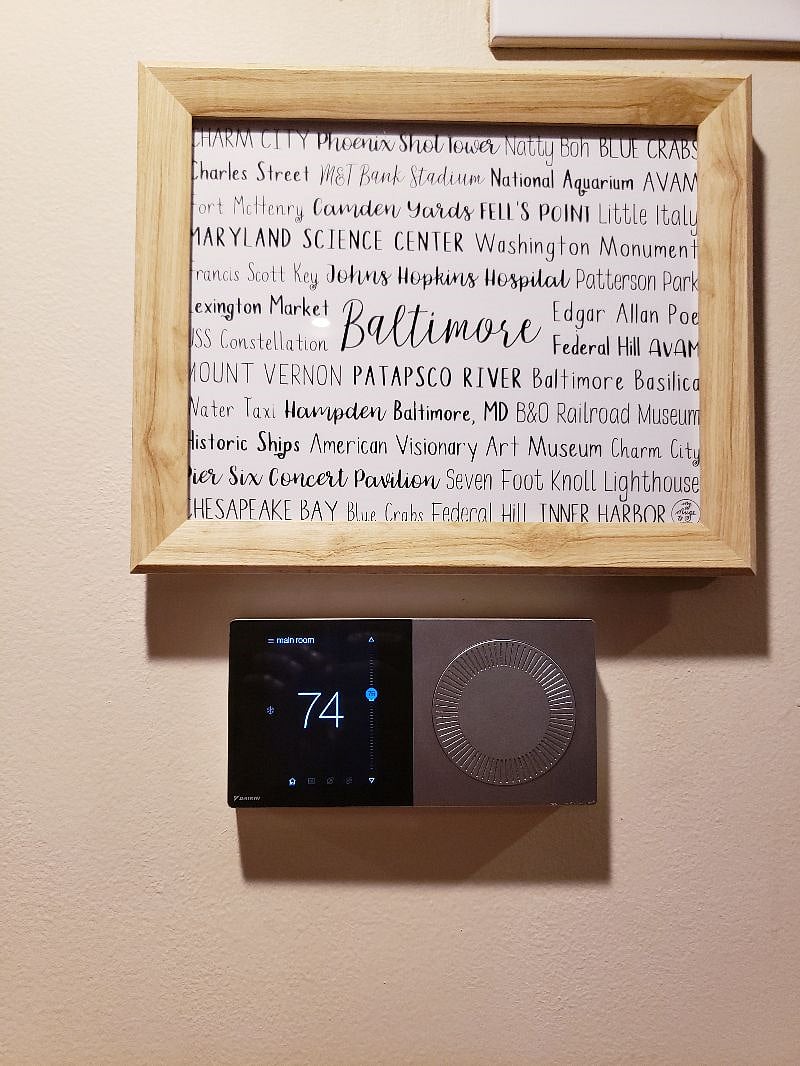 CHARM CITY Phoenix Shot Tower Natty Boh BLUE CRABS
Charles Street M&T Bank Stadium National Aquarium AVAM
Fort McHenry Camden Yards FELL'S POINT Little Italy
MARYLAND SCIENCE CENTER Washington Monument
Francis Scott Key Johns Hopkins Hospital Patterson Park
Lexington Market
USS Constellation
Baltimore
Edgar Allan Poe
Federal Hill AVAM
MOUNT VERNON PATAPSCO RIVER Baltimore Basilica
Water Taxi Hampden Baltimore, MD B&O Railroad Museum
Historic Ships American Visionary Art Museum Charm City
Pier Six Concert Pavilion Seven Foot Knoll Lighthouse
CHESAPEAKE BAY Blue Crabs Federal Hill INNER HARBOR
main room
74
DAIKIN